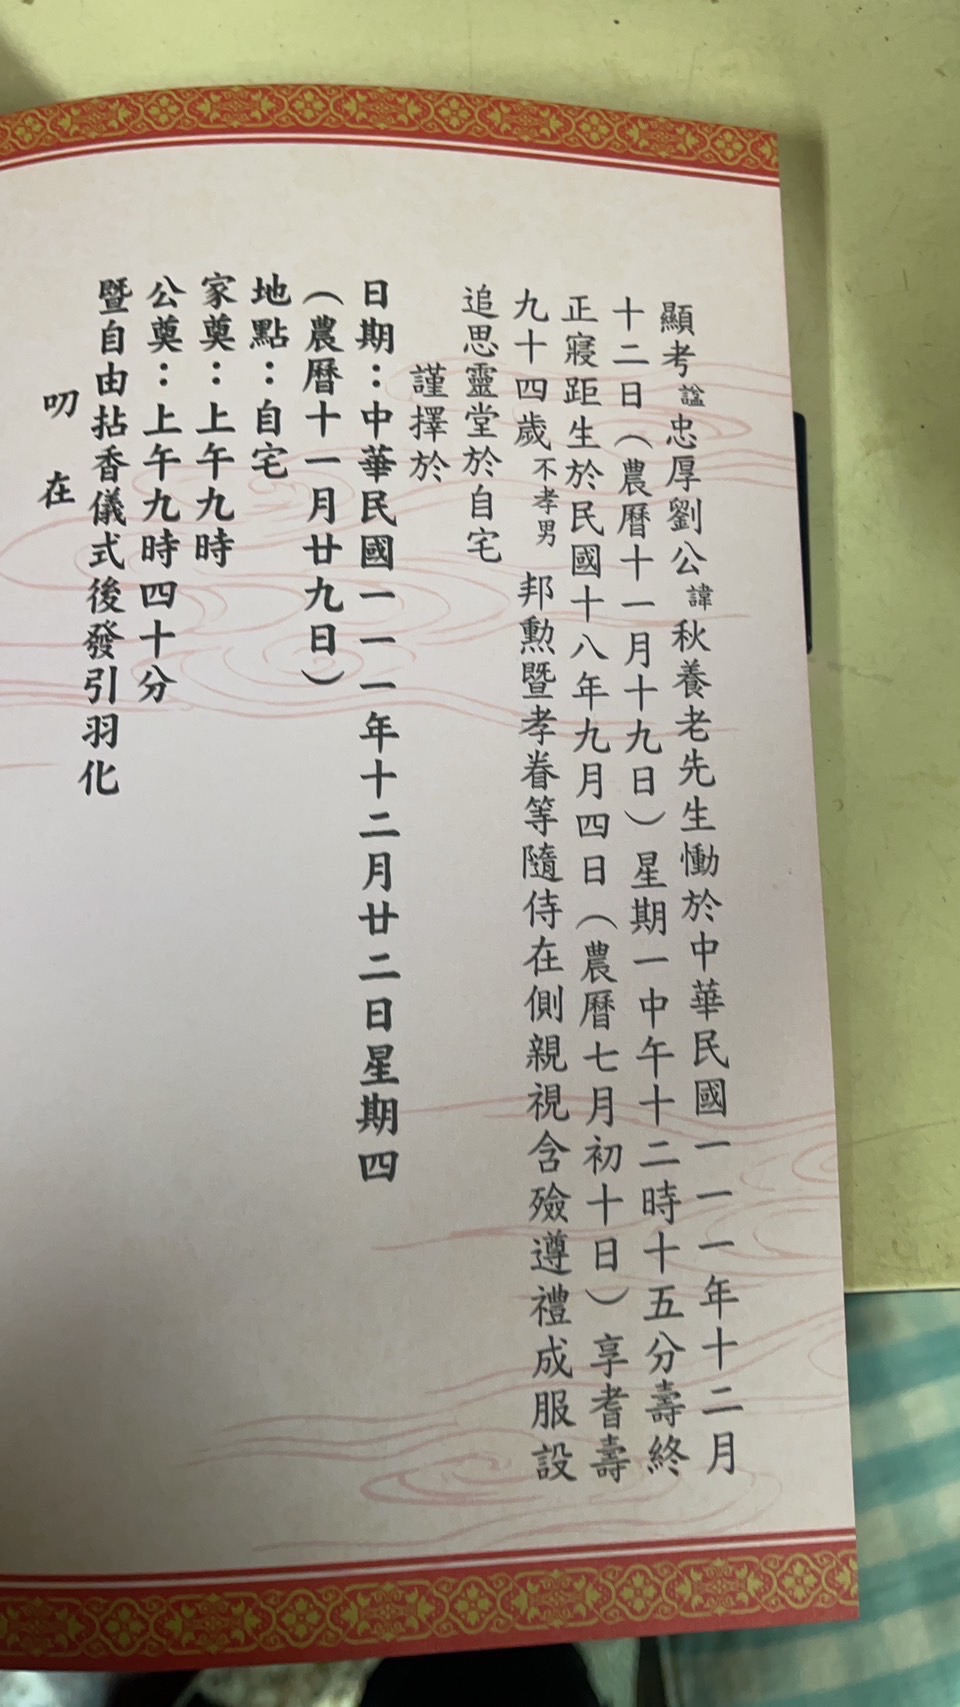 顯考諡忠厚劉公諱秋養老先生慟於中華民國一一一年十二月
十二日（農曆十一月十九日）星期一中午十二時十五分壽終
正寢距生於民國十八年九月四日（農曆七月初十日）享耆壽
九十四歲不孝男邦勲暨孝眷等隨侍在側親視含殮遵禮成服設
追思靈堂於自宅
謹擇於
日期：中華民國一一一年十二月廿二日星期四
（農曆十一月廿九日）
地點：自宅
家奠：上午九時
公奠：上午九時四十分
暨自由拈香儀式後發引羽化
叨在